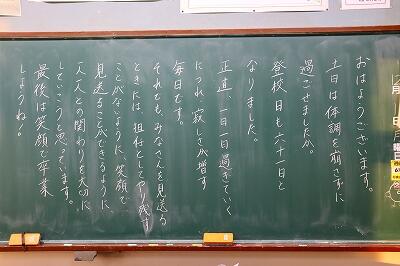 おはようございます。
土日は体調を崩さずに
過ごせましたか。
登校日も六十一日と
なりました。
正直、一日一日過ぎていく
につれ、寂しさが増す
毎日です。
それでも、みなさんを見送る
ときには、担任としてやり残す
ことがないように、笑顔で
見送ることができるように、
一人一人との関わりを大切に
していこうと思っています。
最後は笑顔で卒業
しようね！
月
日
曜日